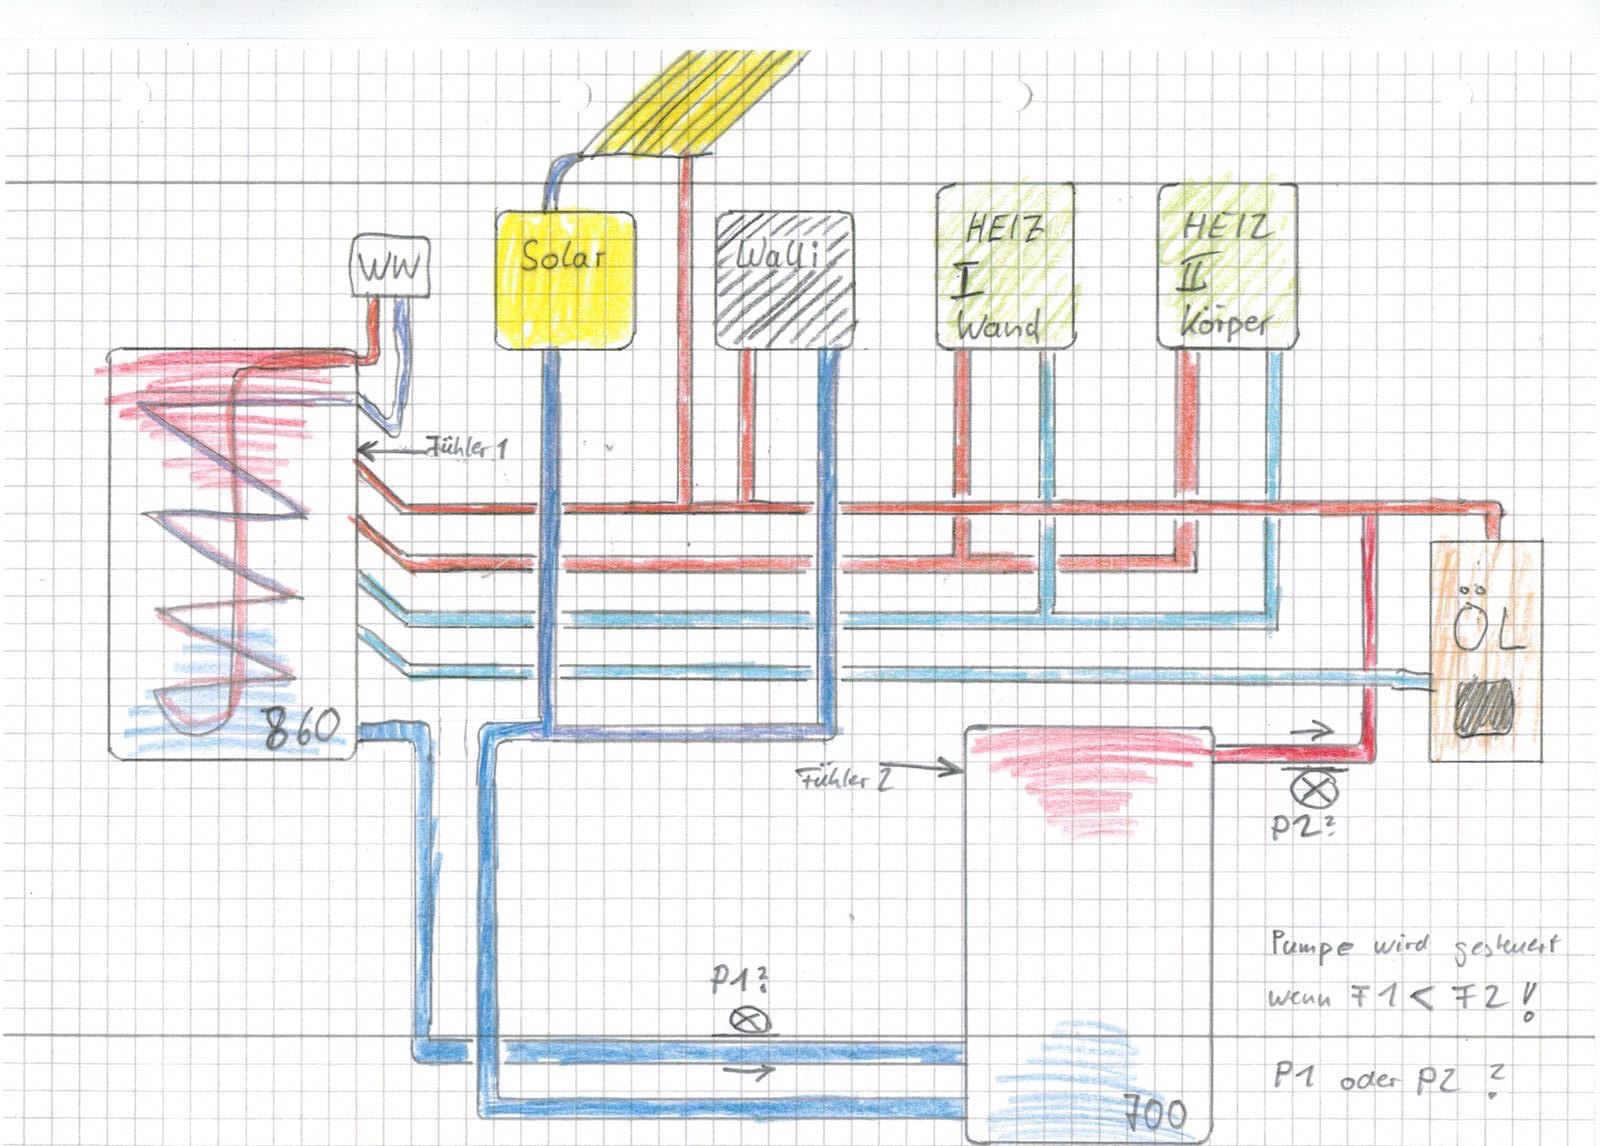 WW
Solar
Walli
HEIZ
I
Wand
HEIZ
II
Körper
Fühler 1
ÖL
860
Fühler 2
P2?
P1?
Pumpe wird gesteuert
wenn F1 < F2 !
P1 oder P2 ?
700